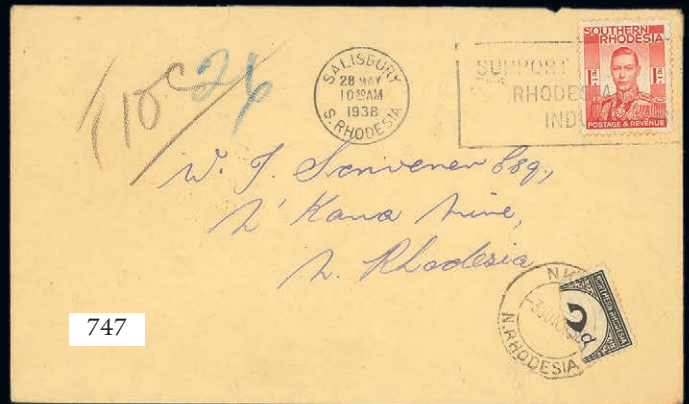 T10c 2d
SALISBURY
28 MAY
10 30 AM
1938
S. RHODESIA
SUPPORT
RHODESIA
INDU
SOUTHERN
RHODESIA
1d 1d
POSTAGE & REVENUE
W. J. Scrivener Esq,
N' Kana Mine,
N. Rhodesia
NK
N. RHODESIA
2d
NORTHERN RHODESIA
747